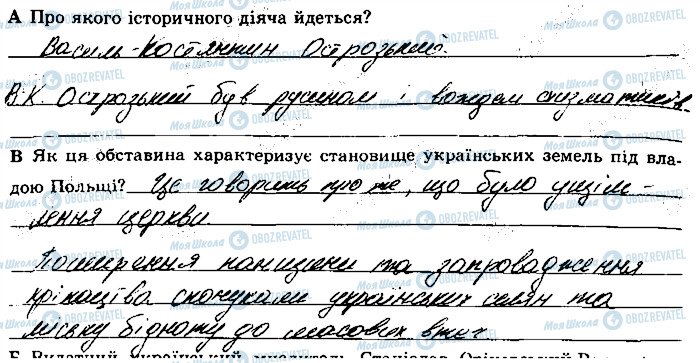 А Про якого історичного діяча йдеться?
Василь-Костянтин Острозький
В.К. Острозький був русином і вождем схизматиків
В Як ця обставина характеризує становище українських земель під вла-
дою Польщі? Це говорить про те, що було ущім-
лення церкви
Поширення панщини та запровадження
кріпацтва спонукали українських селян та
міську бідноту до масових втеч